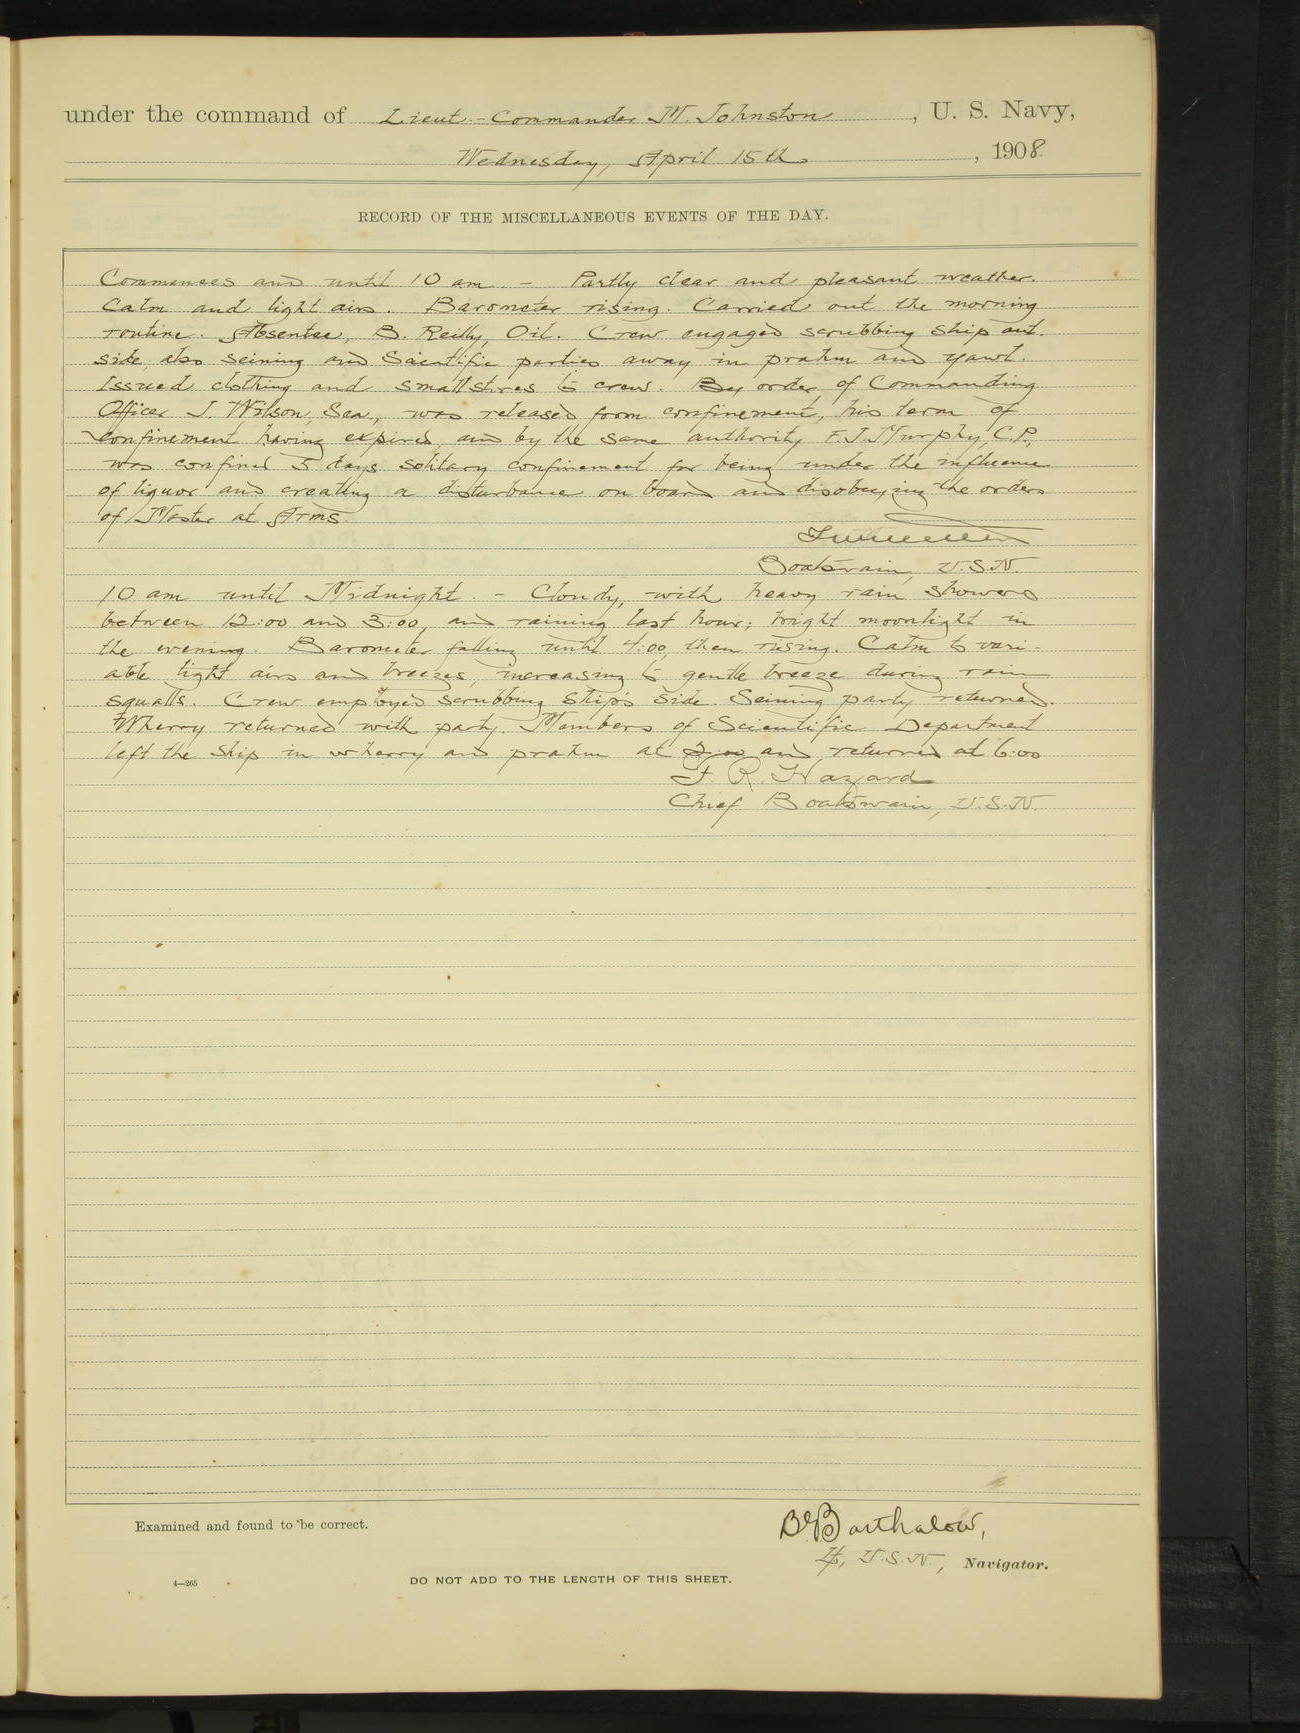 under the command of Lieut-Commander M. Johnston, U. S. Navy,
Wednesday, April 15th, 1908.
RECORD OF THE MISCELLANEOUS EVENTS OF THE DAY.
Commences and until 10 am. - Partly clear and pleasant weather.
Calm and light airs. Barometer rising. Carried out the morning
routine. Absentee, B. Reilly, Oil. Crew engaged scrubbing ship out
side, also seining and Scientific parties away in prahm and yawl.
Issued clothing and small stores to crew. By order of Commanding
Officer J. Wilson, Sea., was released from confinement, his term of
confinement having expired and by the same authority F.J. Murphy, C.P.,
was confined 5 days solitary confinement for being under the influence
of liquor and creating a disturbance on board and disobeying the orders
of Master at Arms.
Boatswain, U.S.N.
10 am until Midnight. - Cloudy, with heavy rain showers
between 12:00 and 3:00, and raining last hour; bright moonlight in
the evening. Barometer falling until 4:00, then rising. Calm to vari-
able light airs and breezes, increasing to gentle breeze during rain
squalls. Crew employed scrubbing ship's side. Seining party returned.
Wherry returned with party. Members of Scientific Department
left the ship in wherry and prahm at 2:00 and returned at 6:00
F. R. Hazard
Chief Boatswain, U.S.N.
Examined and found to be correct.
B. Barthalow,
Lt, U.S.N., Navigator.
4—265
DO NOT ADD TO THE LENGTH OF THIS SHEET.